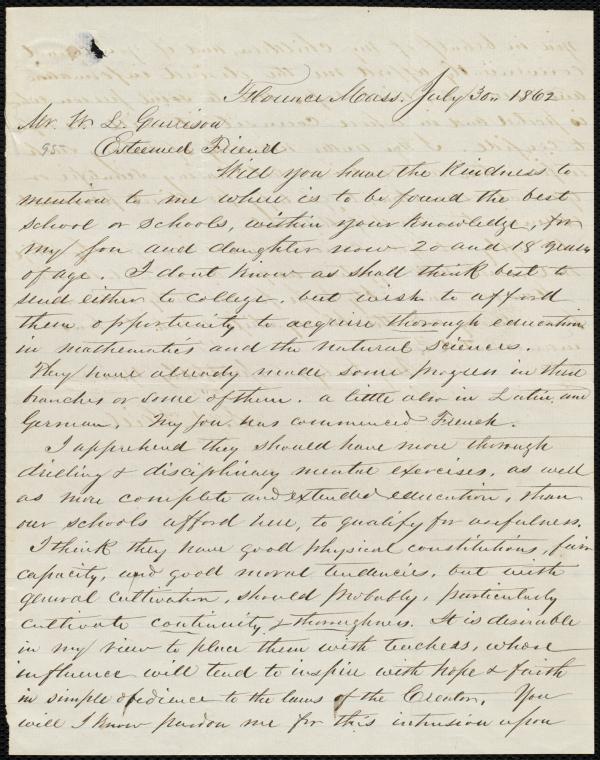 Florence Mass. July 30th 1862
Mr. W. L. Garrison
95 Esteemed Friend
Will you have the kindness to
mention to me where is to be found the best
school or schools, within your knowledge, for
my son and daughter now 20 and 18 years
of age. I dont know as shall think best to
send either to college, but wish to afford
them opportunity to acquire thorough education
in mathematics and the natural sciences.
They have already made some progress in these
branches or some of them. a little also in Latin and
German. My son has commenced French.
I apprehend they should have more thorough
drilling & disciplinary mental exercises, as well
as more complete and extended education, than
our schools afford here, to qualify for usefulness.
I think they have good physical constitutions, fair
capacity, and good moral tendencies, but with
general cultivation, should probably, particularly
cultivate continuity & thoroughness. It is desirable
in my view to place them with teachers, whose
influence will tend to inspire with hope & faith
in simple obedience to the laws of the Creator. You
will I know pardon me for this intrusion upon